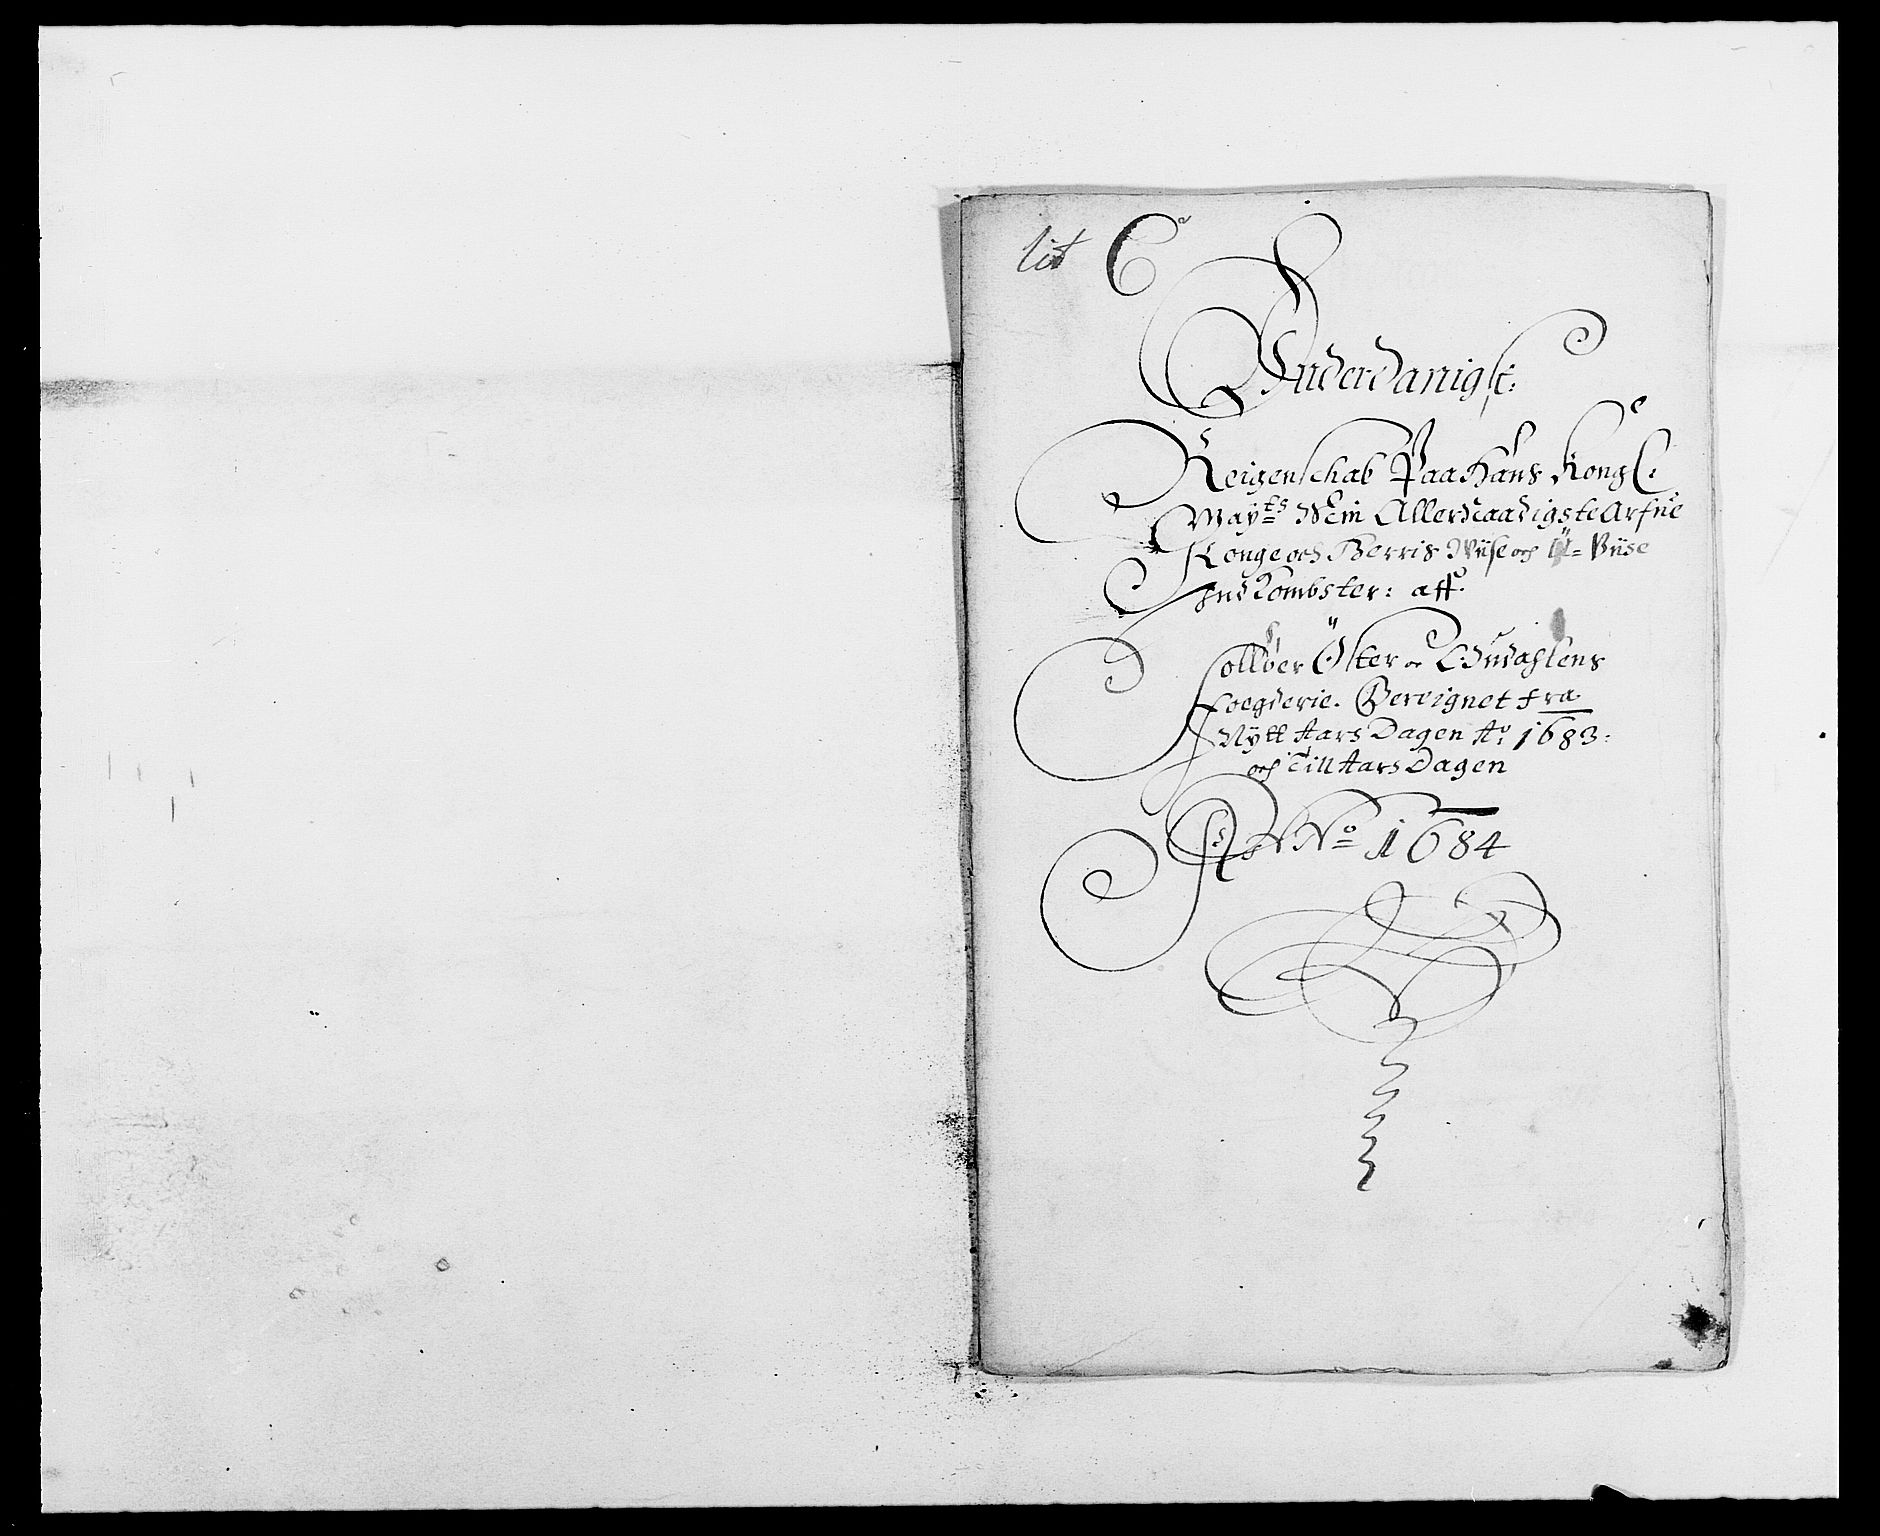 Lit C
Underdanigst:
Reigenschab Paa Hans Kongl:
Mayts Min Allernaadigste Arfue
Konge och Herris Wiise och U= Viise
Indkombster: aff
Solløer Öster oc Oudahlens
Foegderie. Bereignet fra
Nytt Aars Dagen Ao: 1683:
och Till Aars Dagen
No 1684